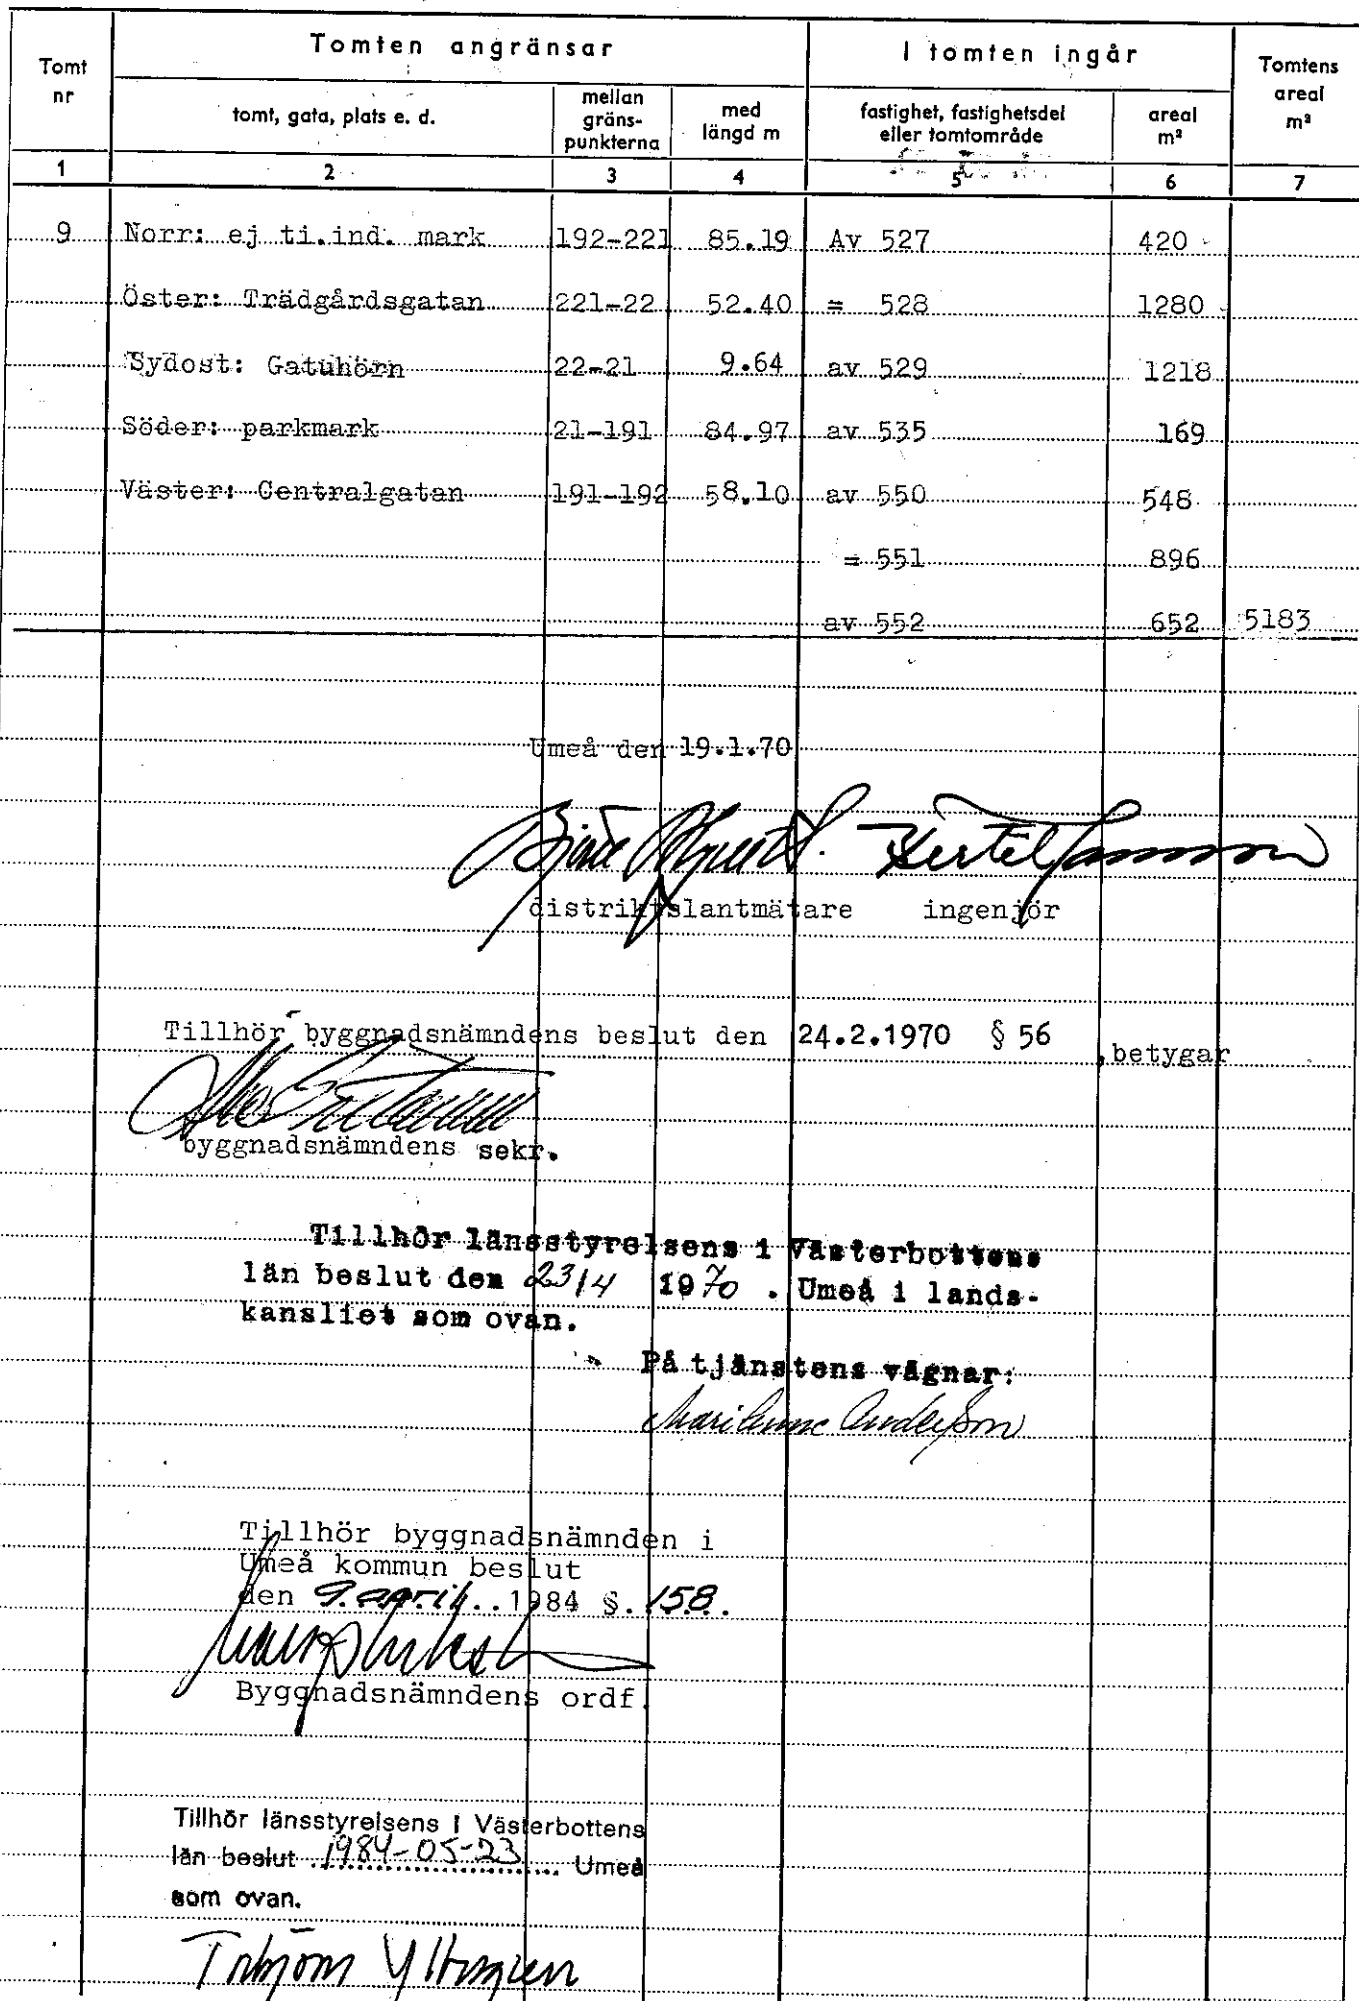 Tomt nr
Tomten angränsar
I tomten ingår
Tomtens areal m²
tomt, gata, plats e. d.
mellan gräns-punkterna
med längd m
fastighet, fastighetsdel eller tomtområde
areal m²
1 2 3 4 5 6 7
9 Norr: ej ti.ind. mark 192-221 85.19 Av 527 420
Öster: Trädgårdsgatan 221-22 52.40 = 528 1280
Sydost: Gatuhörn 22-21 9.64 av 529 1218
Söder: parkmark 21-191 84.97 av 535 169
Väster: Centralgatan 191-192 58.10 av 550 548
= 551 896
av 552 652 5183
Umeå den 19.1.70
Bertil
distriktslantmätare ingenjör
Tillhör byggnadsnämndens beslut den 24.2.1970 § 56 , betygar
byggnadsnämndens sekr.
Tillhör länsstyrelsens i Västerbottens
län beslut den 23/4 1970 . Umeå i lands-
kansliet som ovan.
På tjänstens vägnar:
Marianne Andersson
Tillhör byggnadsnämnden i
Umeå kommun beslut
den 9. april .. 1984 §. 158.
Byggnadsnämndens ordf.
Tillhör länsstyrelsens i Västerbottens
län beslut 1984-05-23 Umeå
som ovan.